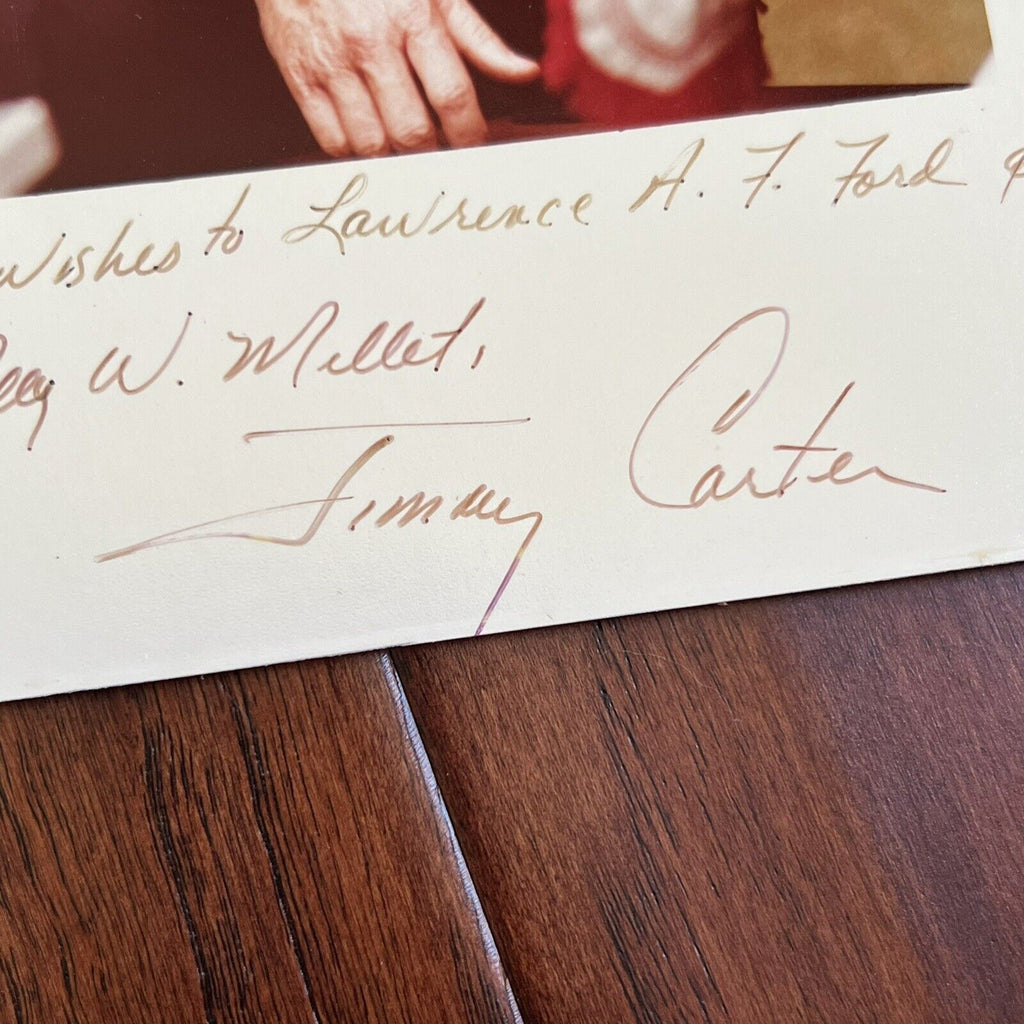 Wishes to Lawrence A. F. Ford
W. Millet,
Jimmy Carter